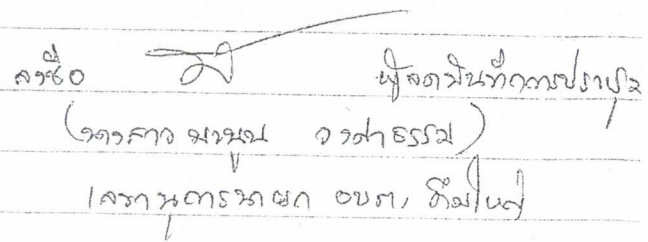 ลงชื่อ ผู้จดบันทึกการประชุม
(นางสาว มานูน วงศาธรรม)
เลขานุการนายก อบต. ทึมใหญ่